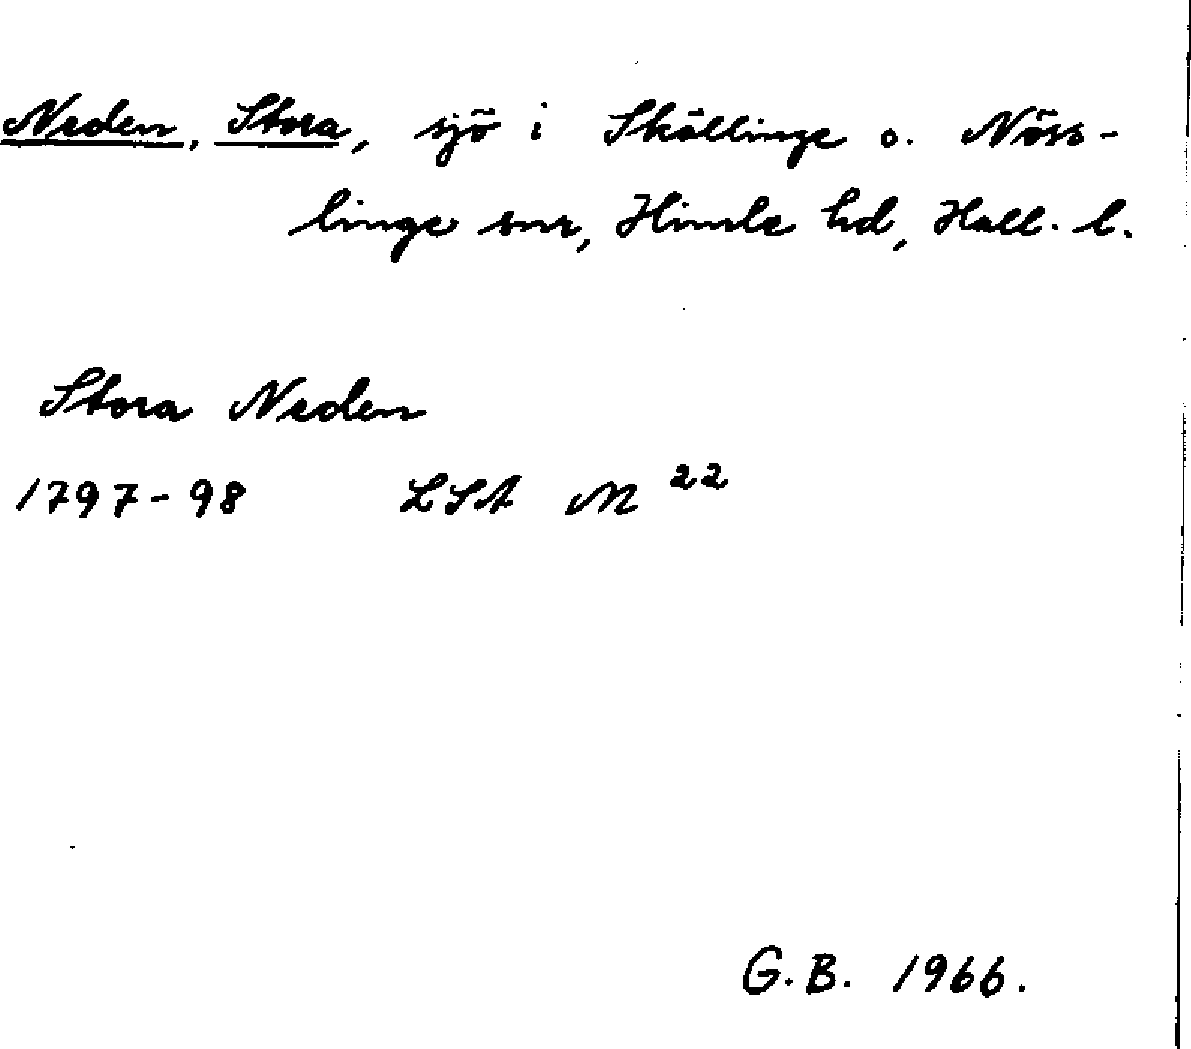 Neden, Stora, sjö i Skällinge o. Nöss-
linge snr, Himle hd, Hall. l.
Stora Neden
1797-98 LSA M 22
G.B. 1966.